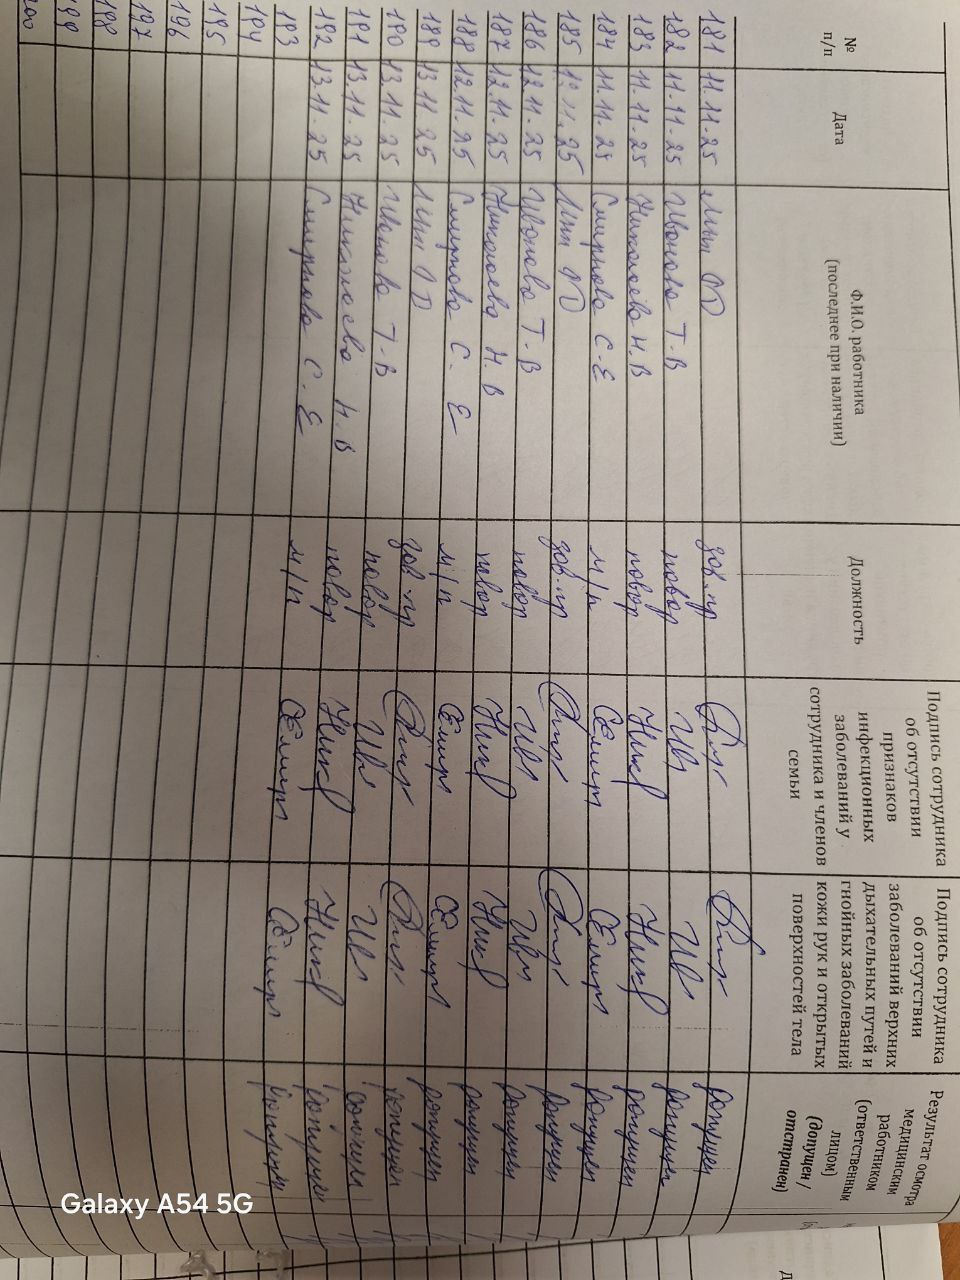 № п/п
Дата
Ф.И.О. работника
(последнее при наличии)
Должность
Подпись сотрудника
об отсутствии
признаков
инфекционных
заболеваний у
сотрудника и членов
семьи
Подпись сотрудника
об отсутствии
заболеваний верхних
дыхательных путей и
гнойных заболеваний
кожи рук и открытых
поверхностей тела
Результат осмотра
медицинским
работником
(ответственным
лицом)
(допущен /
отстранен)
181 11.11.25 зав.пр допущен
182 11.11.25 Иванова Т.В повар Ив Ив допущен
183 11.11.25 Николаева Н.В повар Ник Ник допущен
184 11.11.25 Смирнова С.Е м/п допущен
185 12.11.25 зав.пр допущен
186 12.11.25 Иванова Т.В повар Ив Ив допущен
187 12.11.25 Николаева Н.В повар Ник Ник допущен
188 12.11.25 Смирнова С.Е м/п допущен
189 13.11.25 зав.пр допущен
190 13.11.25 Иванова Т.В повар Ив Ив допущен
191 13.11.25 Николаева Н.В повар Ник Ник допущен
192 13.11.25 Смирнова С.Е м/п допущен
193
194
195
196
197
198
199
200
Galaxy A54 5G